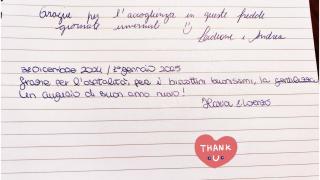 Grazie per l'accoglienza in queste fredde
giornate invernali
Ladione e Andrea
30 Dicembre 2024 / 3 gennaio 2025
Grazie per l'ospitalità, per i biscottini buonissimi, la gentilezza
Un augurio di buon anno nuovo!
Lorenzo
THANK
YOU